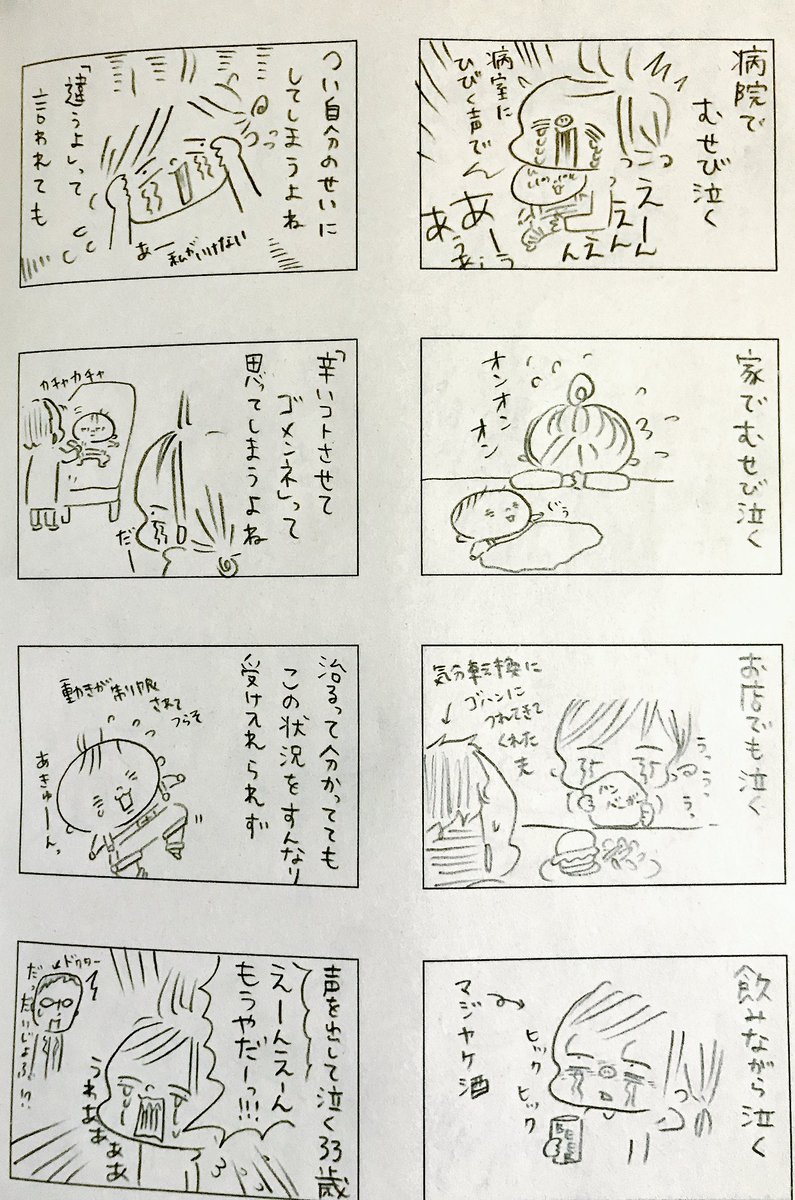 病院で
むせび泣く
病室に
ひびく声でん
えーん
えん
えん
あーう
あうあぅ
家でむせび泣く
オンオン
オン
じぅ
お店でも泣く
気分転換に
ゴハンに
つれてきて
くれた
夫
うっうっ
う、
ハン
バーガー
飲みながら泣く
マジヤケ酒
ヒック
ヒック
BEER
つい自分のせいに
してしまうよね
「違うよ」って
言われても
あー
私がいけない
「辛いコトさせて
ゴメンネ」って
思ってしまうよね
カチャカチャ
だー
治るって分かってても
この状況をすんなり
受け入れられず
動きが制限
されて
つらそ
あきゅーんっ
声を出して泣く33歳
えーんえーん
もうやだーっ!!!
うわぁぁぁぁ
ドクター
だっだいじょぶ!?